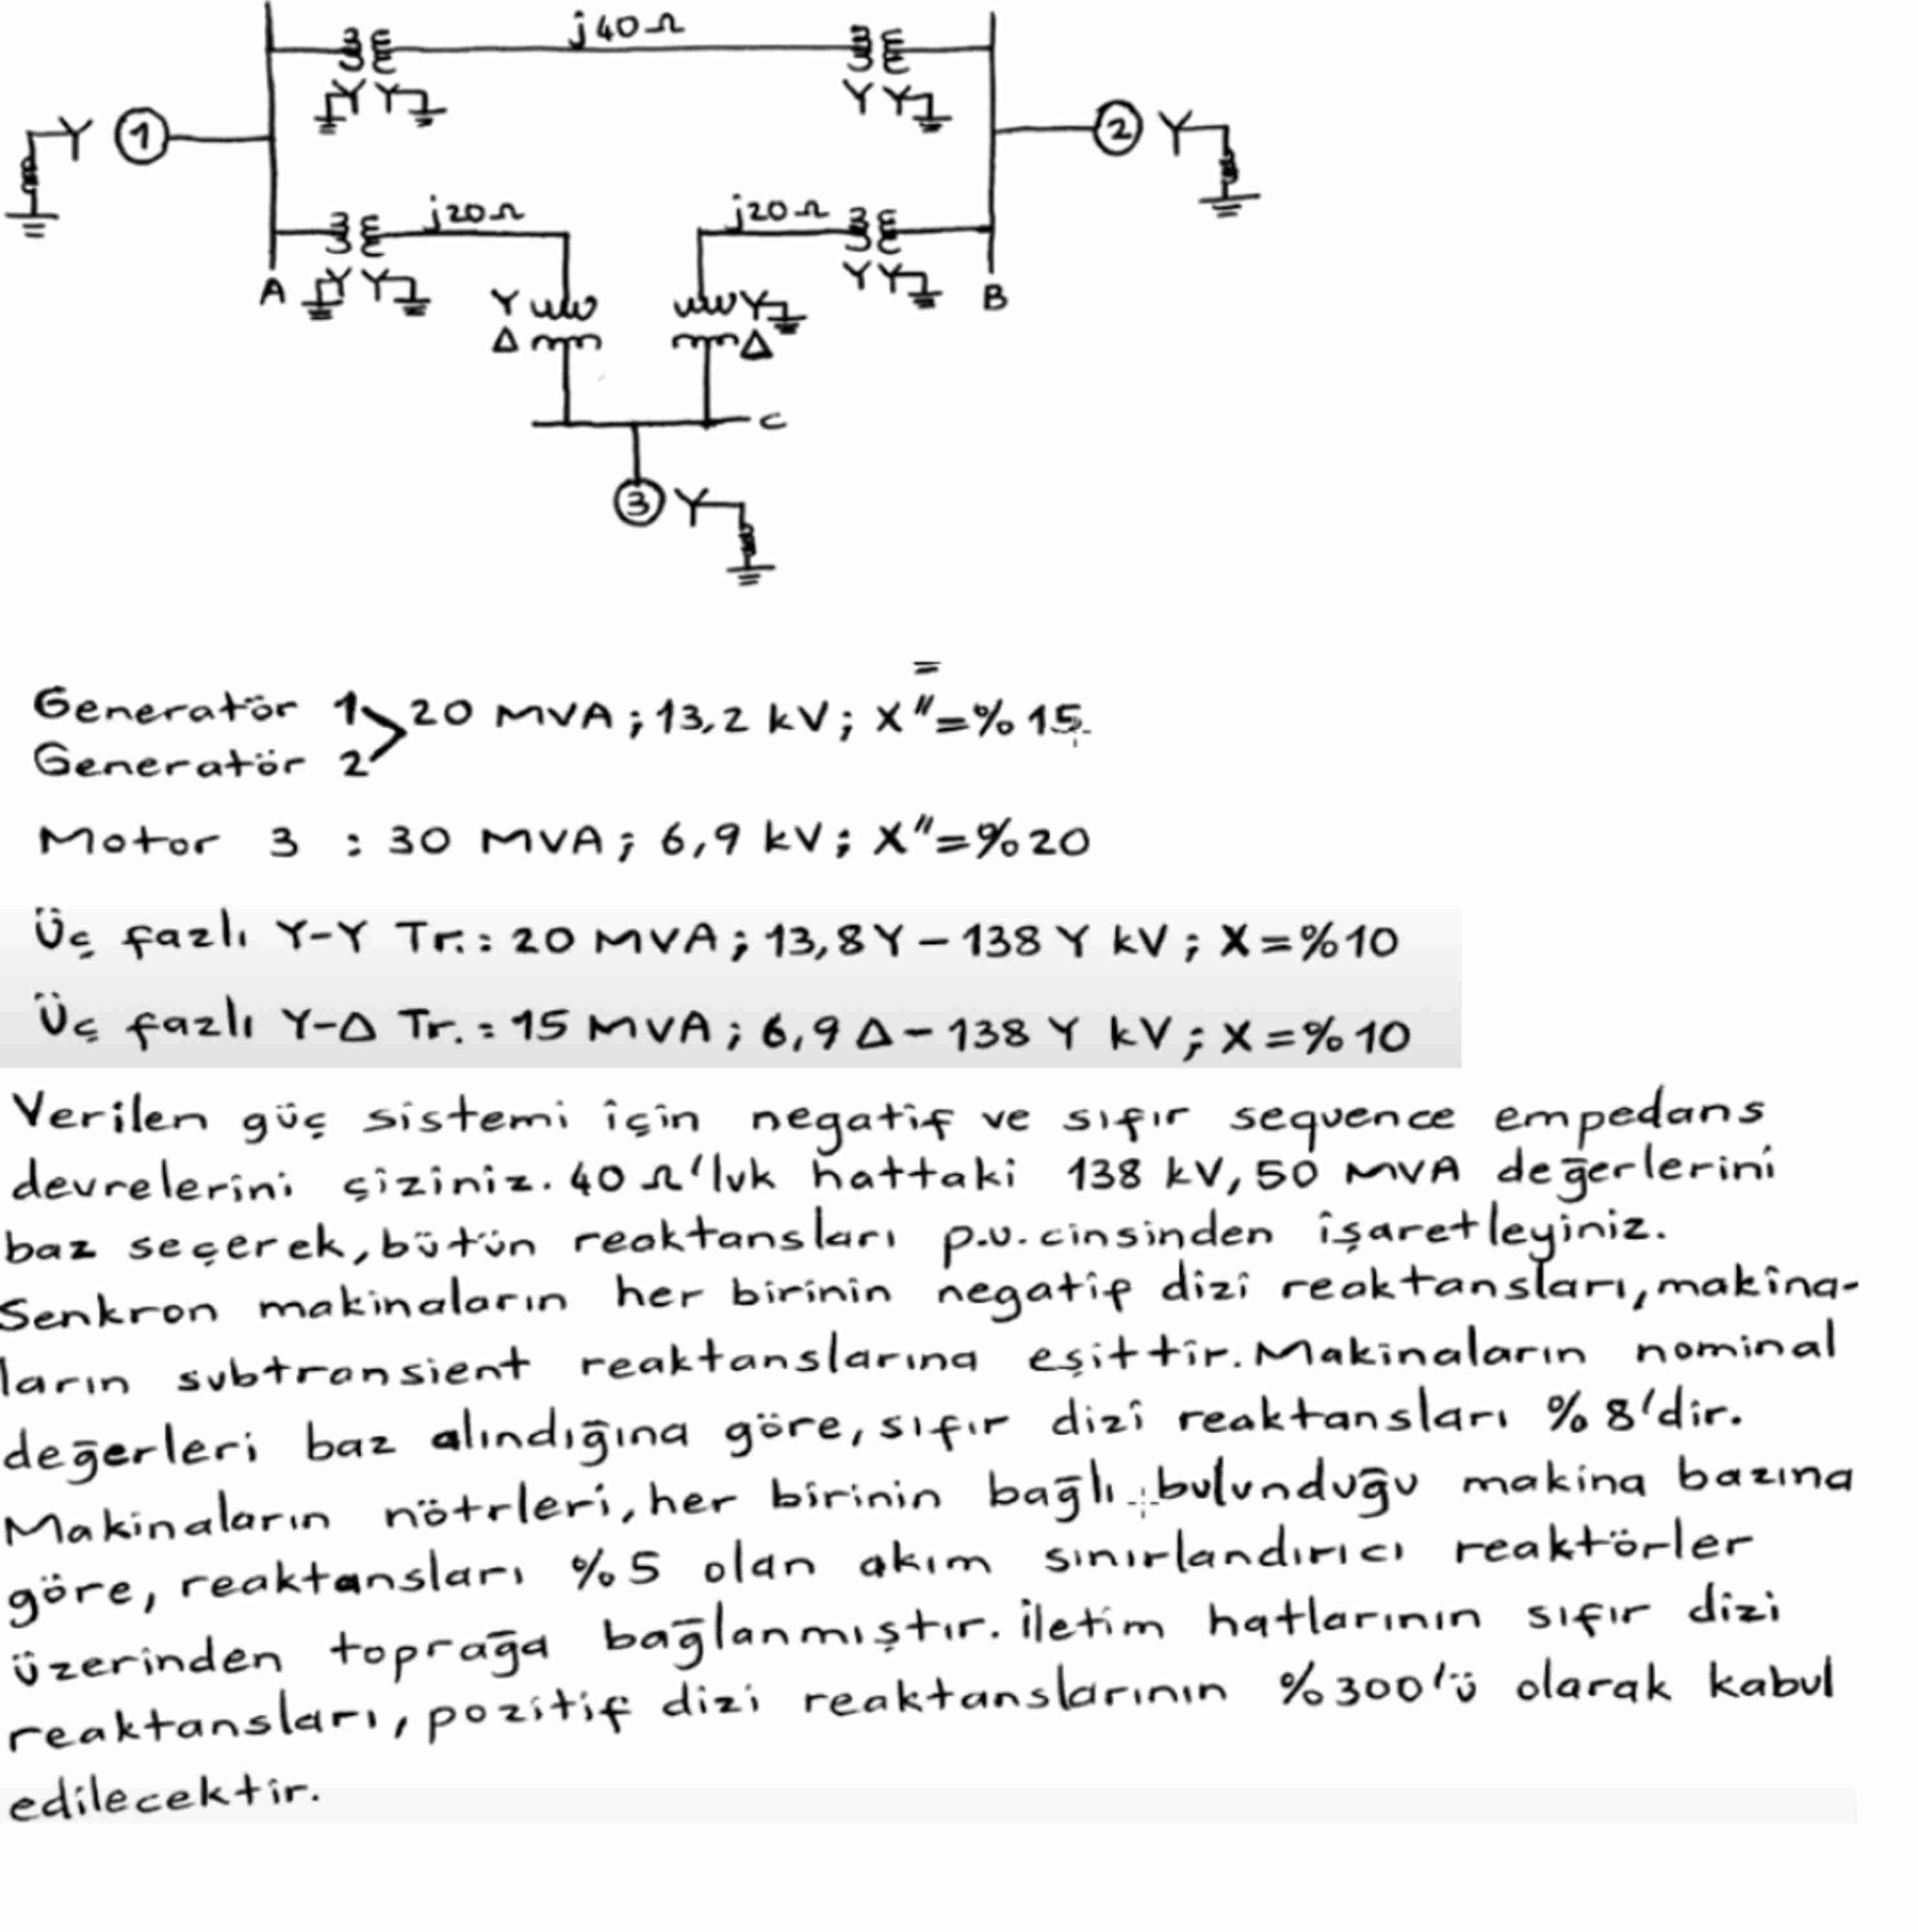 j40Ω
Y Y
Y Y
Y 1
2 Y
j20Ω
j20Ω
A
Y Y
Y
Y
Y Y
B
Δ
Δ
C
3 Y
Generatör 1
20 MVA; 13,2 kV; X"=%15
Generatör 2
Motor 3 : 30 MVA; 6,9 kV; X"=%20
Üç fazlı Y-Y Tr.: 20 MVA; 13,8Y - 138 Y kV; X=%10
Üç fazlı Y-Δ Tr.: 15 MVA; 6,9 Δ - 138 Y kV; X=%10
Verilen güç sistemi için negatif ve sıfır sequence empedans
devrelerini çiziniz. 40 Ω'luk hattaki 138 kV, 50 MVA değerlerini
baz seçerek, bütün reaktansları p.u. cinsinden işaretleyiniz.
Senkron makinaların her birinin negatif dizi reaktansları, makina-
ların subtransient reaktanslarına eşittir. Makinaların nominal
değerleri baz alındığına göre, sıfır dizi reaktansları %8'dir.
Makinaların nötrleri, her birinin bağlı bulunduğu makina bazına
göre, reaktansları %5 olan akım sınırlandırıcı reaktörler
üzerinden toprağa bağlanmıştır. İletim hatlarının sıfır dizi
reaktansları, pozitif dizi reaktanslarının %300'ü olarak kabul
edilecektir.